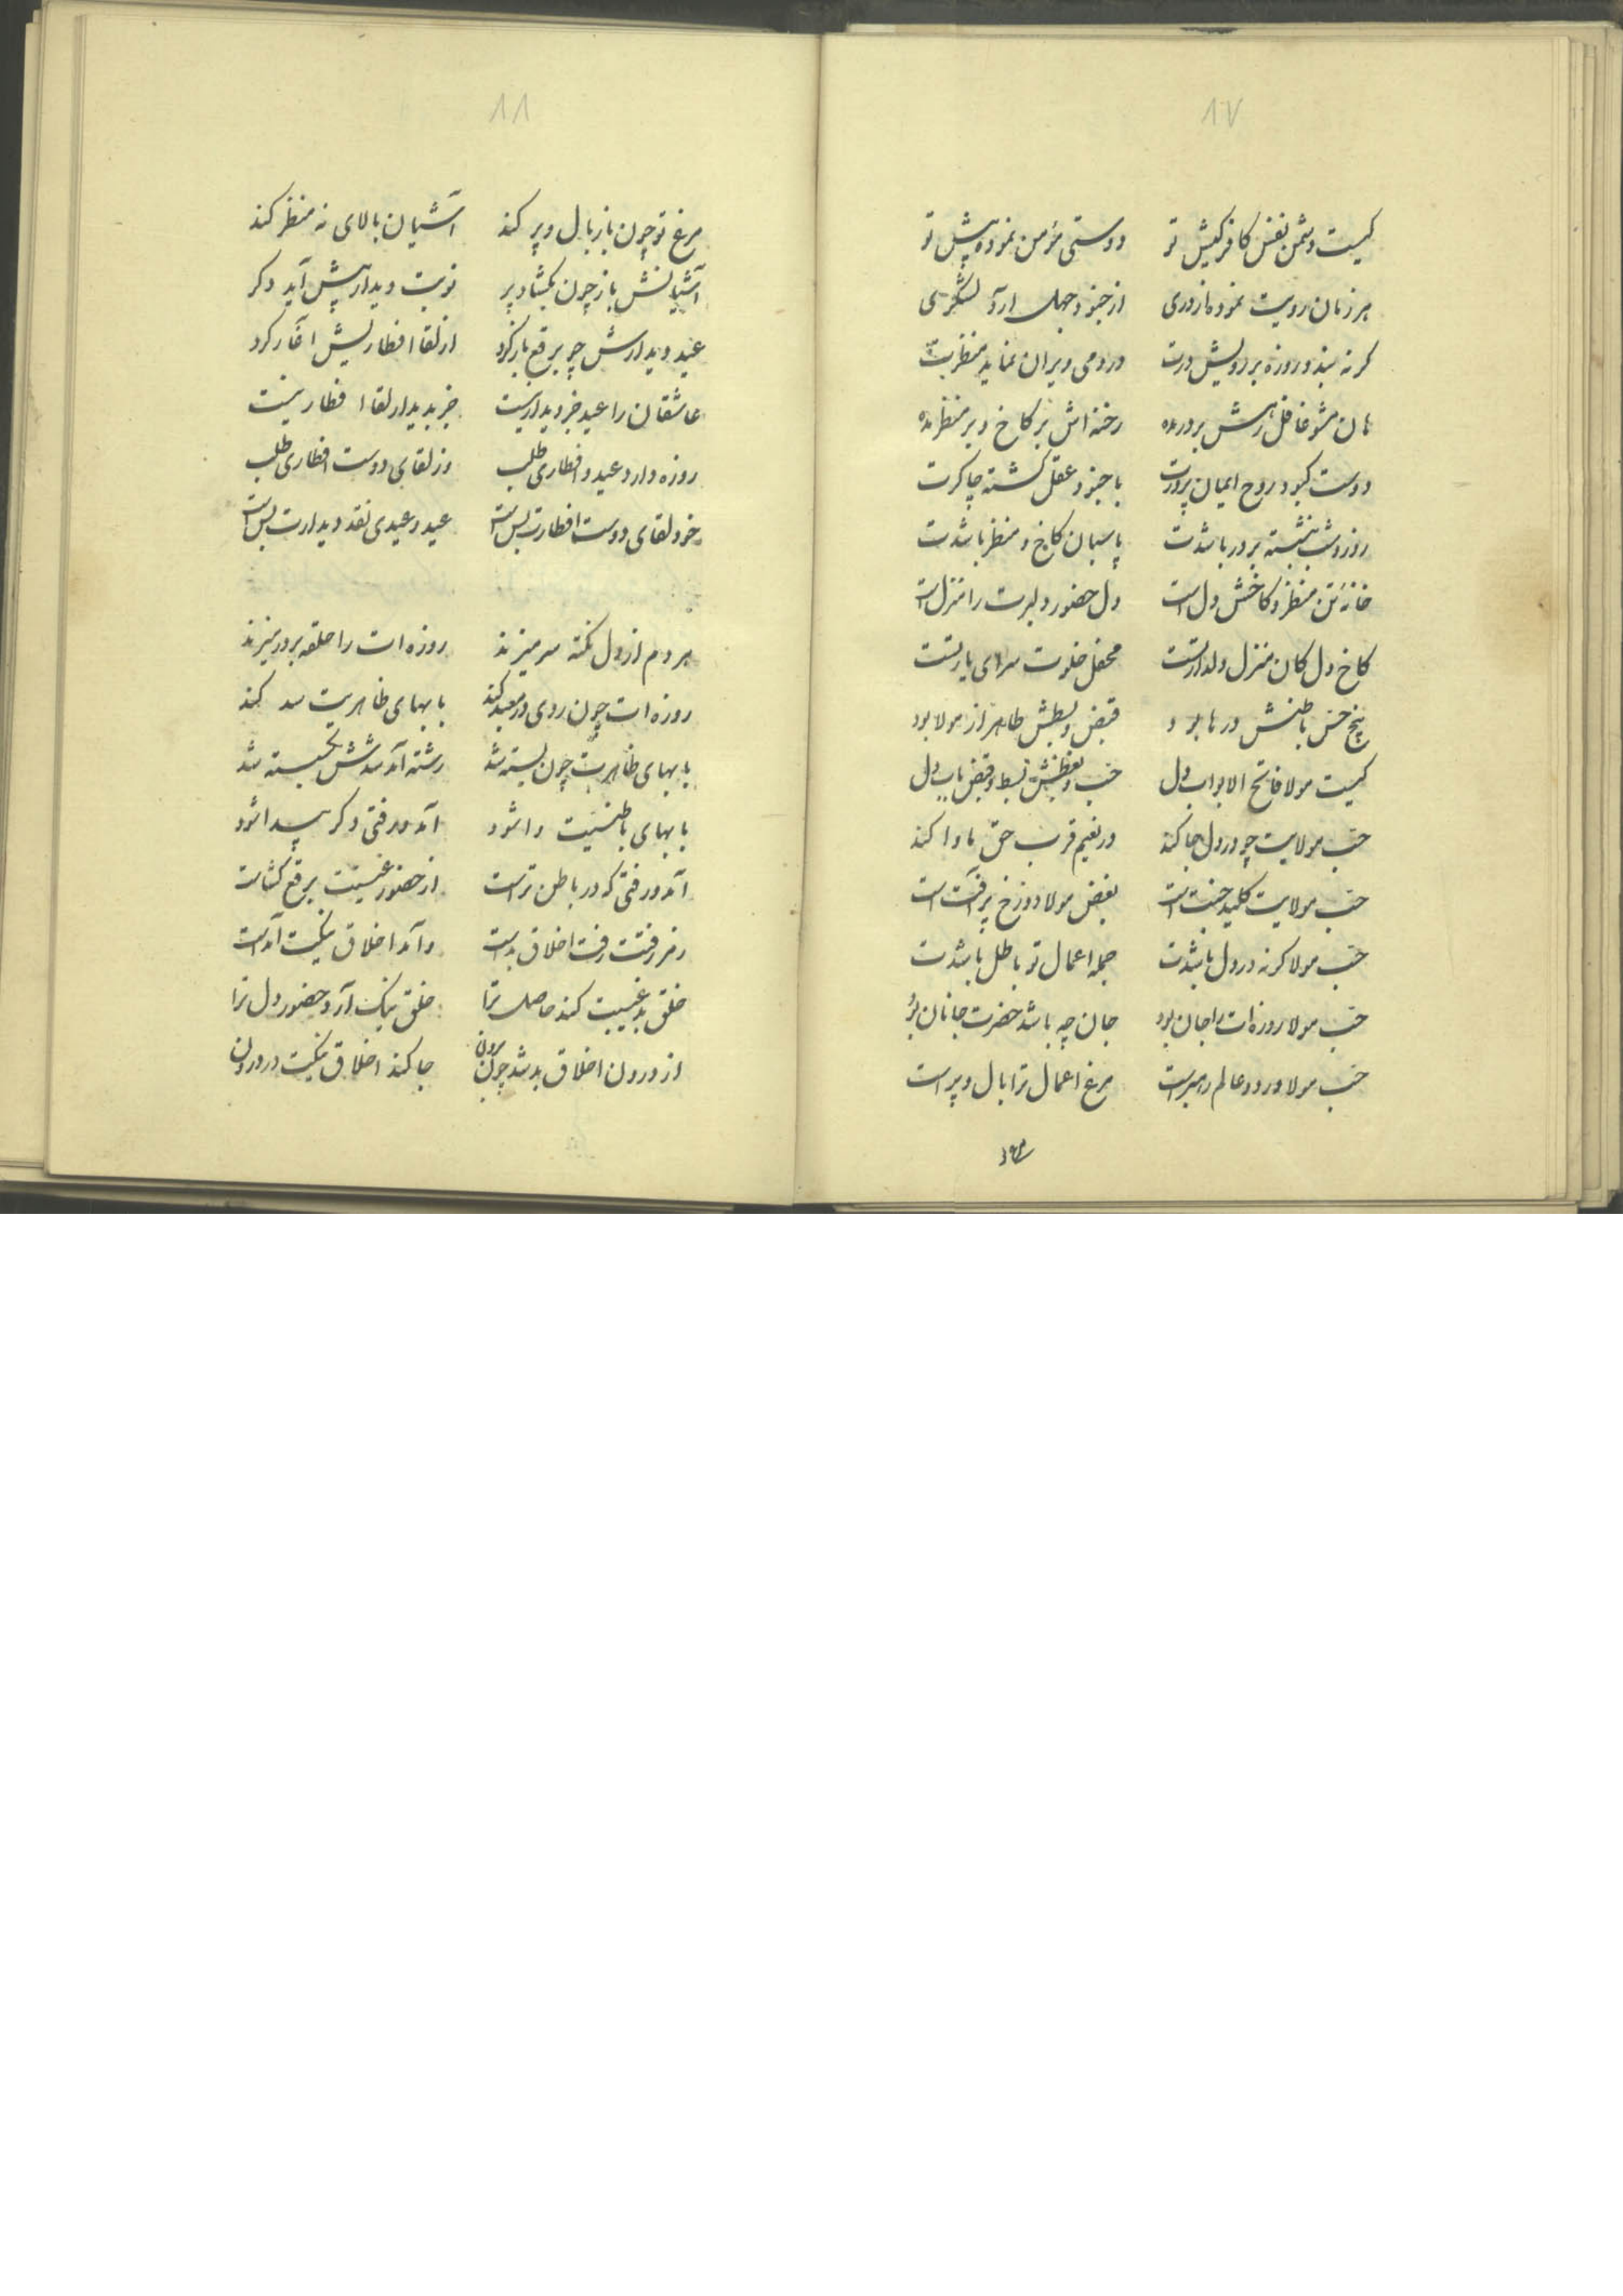 ۸۷
کیست دشمن نفس کافرکیش تو دوستی مؤمن نموده پیش تو
هر زمان رویت نمود از وری از جنود جهل آرد لشکری
کرنه بندد روزه بر رویش درت در دمی ویران نماید منظرت
هان مشو غافل رهش بر در مده رخنه اش بر کاخ و بر منظر مده
دوست کبود روح ایمان پرورت با جنود عقل کشته چاکرت
روز و شب بنشسته بر در باشدت پاسبان کاخ و منظر باشدت
خانهٔ تن منظر و کاخش دل است دل حضور دلبرت را منزل است
کاخ دل کان منزل دلدار تست محفل خلوت سرای یار تست
پنج حس باطنش درها بود قبض و بسطش ظاهر از مولا بود
کیست مولا فاتح الابواب دل حب و بغضش بسط و قبض باب دل
حب مولایت چو در دل جا کند در نعیم قرب حق ماوا کند
حب مولایت کلید جنت است بغض مولا دوزخ پر آفت است
حب مولا کرنه در دل باشدت جمله اعمال تو باطل باشدت
حب مولا روزه ات را جان بود جان چه باشد حضرت جانان بود
حب مولا در دو عالم رهبر است مرغ اعمال ترا بال و پر است
۸۸
مرغ تو چون باز بال و پر کند آشیان بالای نه منظر کند
آشیانش باز چون بکشاد پر نوبت دیدار پیش آید دکر
عید دیدارش چو برقع باز کرد از لقا افطار بیش آغاز کرد
عاشقان را عید جز دیدار نیست جز بدیدار لقا افطار نیست
روزه دارد عید و افطاری طلب وز لقای دوست افطاری طلب
خود لقای دوست افطارت بس است عید و عیدی نقد دیدارت بس است
هر دم از دل نکته سر میزند روزه ات را حلقه بر در میزند
روزه ات چون روی در معبد کند بابهای ظاهریت سد کند
بابهای ظاهریت چون بسته شد رشته آمد شدش بکسسته شد
بابهای باطنیت وا شود آمد و رفتی دکر پیدا شود
آمد و رفتی که در باطن تراست از حضور غیبتت برقع کشاست
رمز رفتت رفت اخلاق بد است و آمد اخلاق نیکیت آمد است
خلق بد غیبت کند حاصل ترا خلق نیک آرد حضور دل ترا
از درون اخلاق بد شد چون برون جا کند اخلاق نیکیت در درون